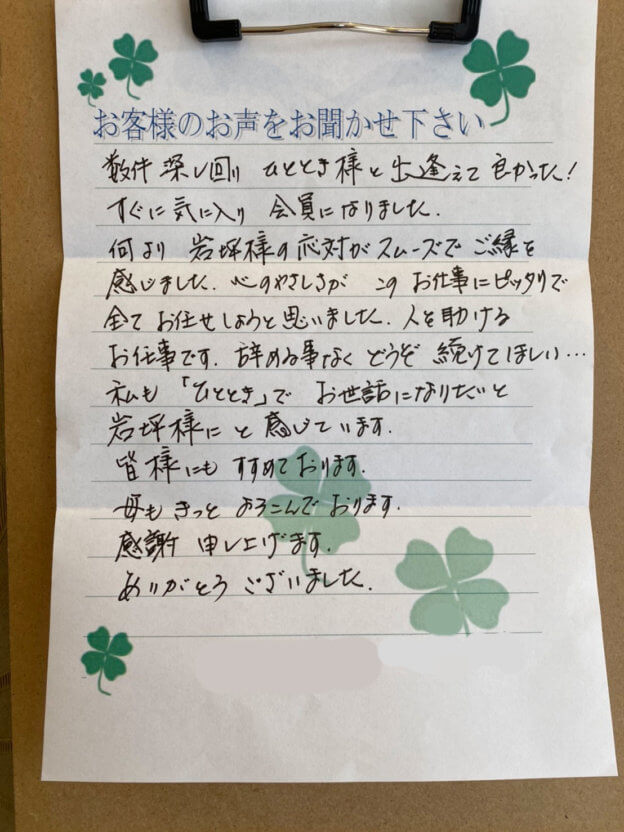 お客様のお声をお聞かせ下さい
数件 探し回り ひととき様と出逢えて良かった!
すぐに気に入り 会員になりました.
何より 岩坪様の応対がスムーズでご縁を
感じました. 心のやさしさが この お仕事にピッタリで
全て お任せしようと思いました. 人を助ける
お仕事です. 辞める事なく どうぞ 続けてほしい…
私も「ひととき」で お世話になりたいと
岩坪様に と 感じています.
皆様にも すすめております.
母も きっと よろこんで おります.
感謝 申し上げます.
ありがとう ございました.